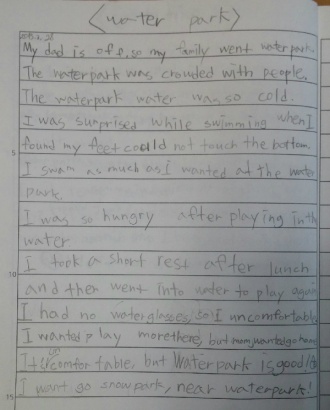 <water park>
My dad is off, so my family went waterpark.
The waterpark was crowded with people.
The waterpark water was so cold.
I was surprised while swimming when I
5
found my feet could not touch the bottom.
I swam as much as I wanted at the water
park
I was so hungry after playing in the
water
10
I took a short rest after lunch
and then went into water to play again
I had no waterglasses, so I uncomfortable
I wanted play more there, but mom wanted go home
comfortable, but Waterpark is good
15
I want go snowpark, near waterpark!